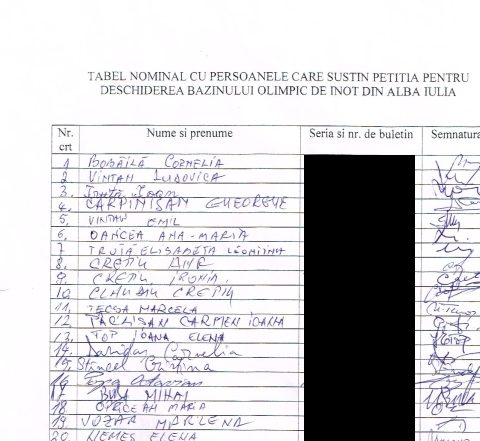 TABEL NOMINAL CU PERSOANELE CARE SUSTIN PETITIA PENTRU
DESCHIDEREA BAZINULUI OLIMPIC DE INOT DIN ALBA IULIA
Nr. crt Nume si prenume Seria si nr. de buletin Semnatura
1 BOBĂILĂ CORNELIA
2 VINTAN LUDOVICA
3. Ioan
4. CARPINISAN GHEORGHE
5, VINTAN EMIL
6, OANCEA ANA-MARIA
7 TRUTA ELISABETA LEONTINA
8. CREȚU ANA
9. CREȚU IRONIM.
10 CLAUDIU CREȚU
11, TECSA MARCELA
12 CARMEN IOANA
13. TOP IOANA ELENA
14. Cornelia
15,
16 Octavian
17 BUSA MIHAI
18 OPRCEAN MARIA
19 VOZAR MARLENA
20 NEMES ELENA